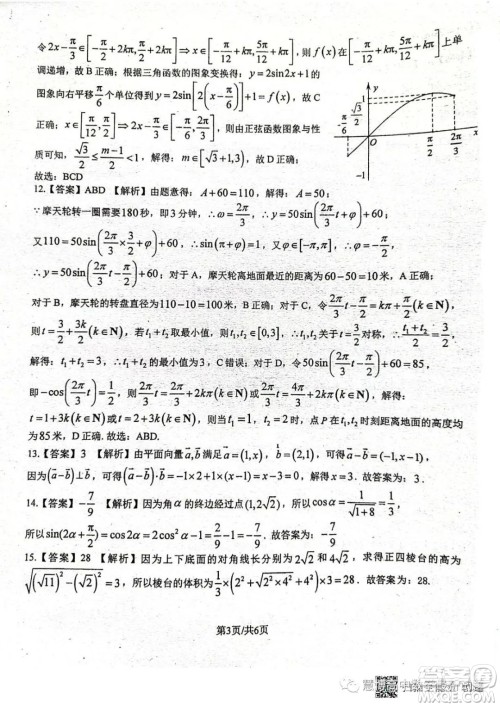 令2x-π/3∈[-π/2+2kπ,π/2+2kπ]⇒x∈[-π/12+kπ,5π/12+kπ],则f(x)在[-π/12+kπ,5π/12+kπ]上单
调递增,故B正确;根据三角函数的图象变换得:y=2sin2x+1的
图象向右平移π/6个单位得到y=2sin[2(x-π/6)]+1=f(x),故C
正确;x∈[π/12,π/2]⇒x∈[-π/6,2π/3],则由正弦函数图象与性
质可知,√3/2≤(m-1)/2<1,解得:m∈[√3+1,3),故D正确.
故选:BCD
y
1
√3/2
-π/6
O
π/2
2π/3
x
-1
12.【答案】ABD 【解析】由题意得:A+60=110,解得:A=50;
∵摩天轮转一圈需要180秒,即3分钟,∴ω=2π/3,∴y=50sin(2π/3 t+φ)+60;
又110=50sin(2π/3×3/2+φ)+60,∴sin(π+φ)=1,又φ∈[-π,π],∴φ=-π/2,
∴y=50sin(2π/3 t-π/2)+60;对于A,摩天轮离地面最近的距离为60-50=10米,A正确;
对于B,摩天轮的转盘直径为110-10=100米,B正确;对于C,令2π/3 t-π/2=kπ+π/2(k∈N),
则t=3/2+3/2k(k∈N),若t₁+t₂取最小值,则t₁,t₂∈[0,3],∴t₁,t₂关于t=3/2对称,∴(t₁+t₂)/2=3/2,
解得:t₁+t₂=3,∴t₁+t₂的最小值为3,C错误;对于D,令50sin(2π/3 t-π/2)+60=85,
即-cos(2π/3 t)=1/2,则2π/3 t=2π/3+2kπ(k∈N)或2π/3 t=4π/3+2kπ(k∈N),解得:
t=1+3k(k∈N)或t=2+3k(k∈N),则当t₁=1,t₂=2时,点P在t₁,t₂时刻距离地面的高度
均为85米,D正确.故选:ABD.
13.【答案】3 【解析】由平面向量a,b满足a=(1,x),b=(2,1),可得a-b=(-1,x-1)
因为(a-b)⊥b,可得(a-b)·b=-1×2+1×(x-1)=x-3=0,解得x=3.
14.【答案】-7/9 【解析】因为角α的终边经过点(1,2√2),所以cosα=1/√(1+8)=1/3,
所以sin(2α+π/2)=cos2α=2cos²α-1=2/9-1=-7/9.故答案为:-7/9.
15.【答案】28 【解析】因为上下底面的对角线长分别为2√2和4√2,求得正四棱台的高为
√((√11)²-(√2)²)=3,所以棱台的体积为1/3×(2²+√(2²×4²)+4²)×3=28.故答案为:28.
第3页/共6页